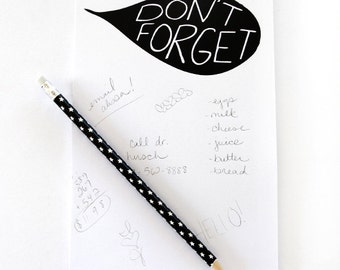 DON'T
FORGET
email
alisa!
eggs
milk
cheese
juice
butter
bread
call dr.
hirsch
562-8888
HELLO!